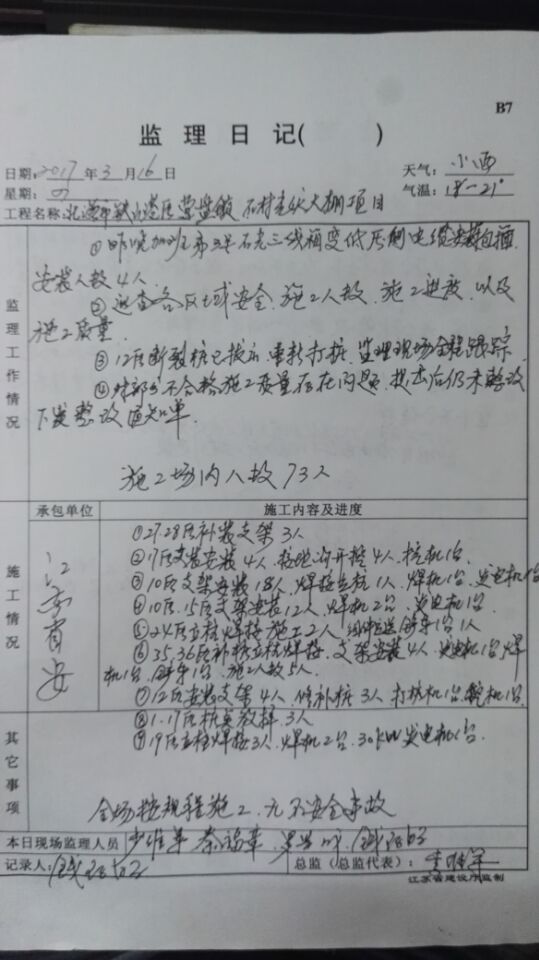 B7
监 理 日 记( )
日期: 2017 年 3 月 16 日 天气: 小雨
星期: 四 气温: 18-21°
工程名称: 营盘镇 石材 大棚项目
①昨晚加班 第三 线箱变低压侧电缆
安装人数4人.
②巡查各区域安全.施工人数.施工进度.以及
施工质量.
③12区断裂桩已拔出重新打桩.监理现场全程跟踪
④ 不合格施工质量存在问题,提出后仍未整改
下发整改通知单.
施工场内人数73人
监理工作情况
承包单位 施工内容及进度
施工情况
江 省 安
①27-28区补装支架3人
②17区支架安装4人. 4人.挖机1台.
③10区支架安装18人.焊接立柱1人.焊机1台.发电机1台
④10区.15区支架安装12人.焊机2台.发电机1台.
⑤24区立柱焊接施工2人. 1台1人
⑥35.36区补桩立柱焊接.支架安装4人.发电机1台.焊
机1台. 1台.施工人数5人.
⑦12区安装支架4人.修补桩3人.打桩机1台. 机1台.
⑧1-17区桩 放样3人
⑨19区立柱焊接3人.焊机2台.30kW发电机1台.
其它事项
全场按规程施工.无不安全事故
本日现场监理人员
记录人: 总监(总监代表):
江苏省建设厅监制